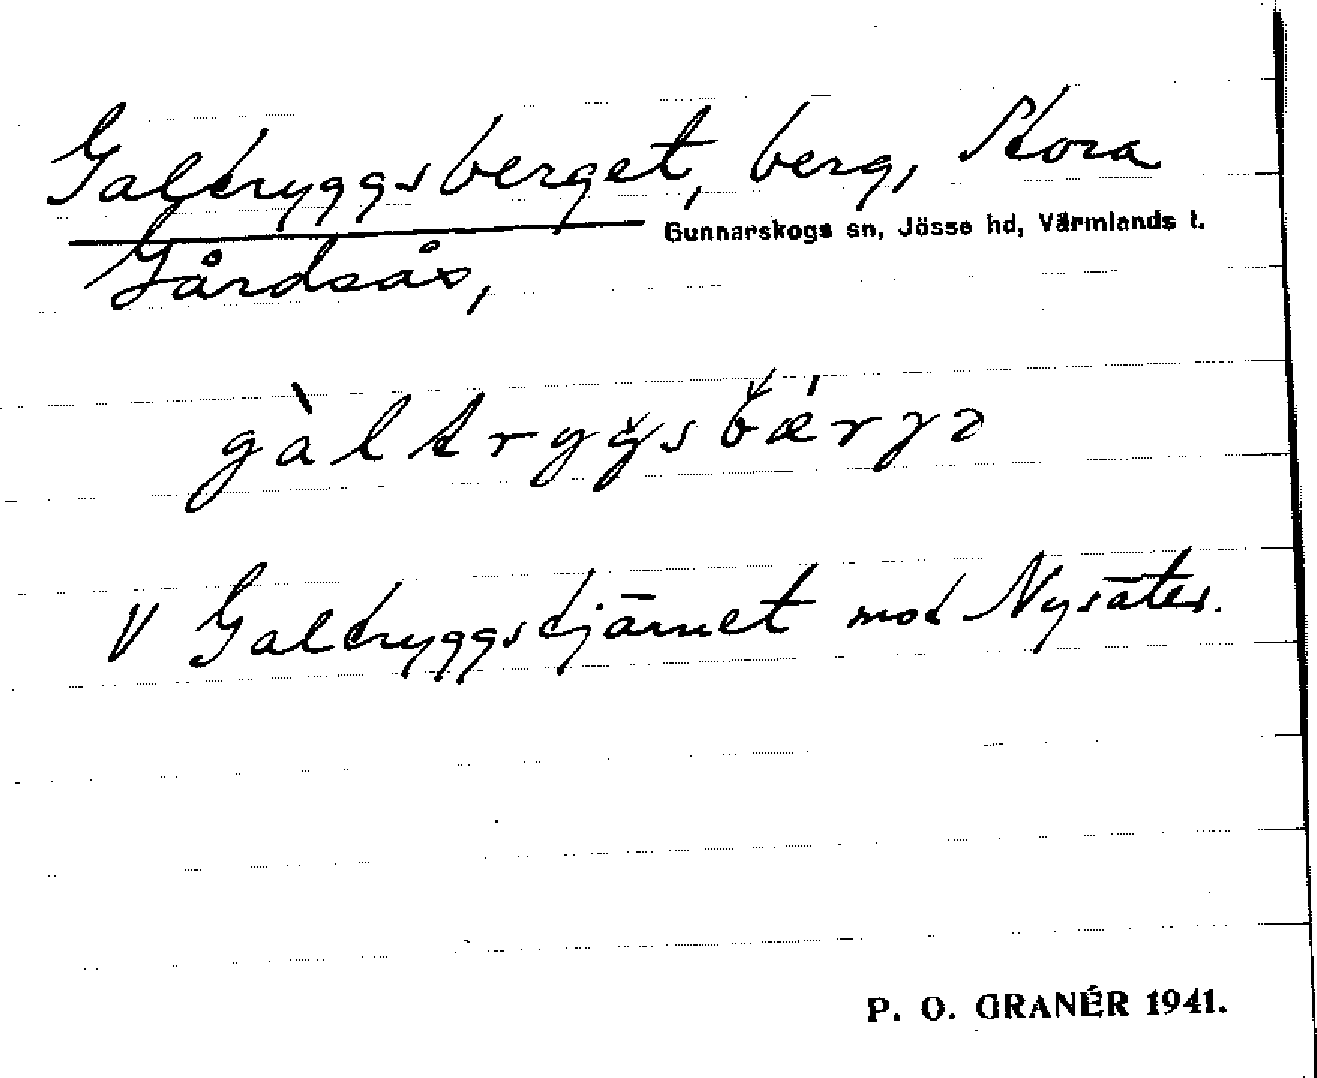 Galtryggsberget, berg, Stora
Gunnarskogs sn, Jösse hd, Värmlands l.
Gårdsås,
V Galtryggstjärnet mot Nysäter.
P. O. GRANÉR 1941.